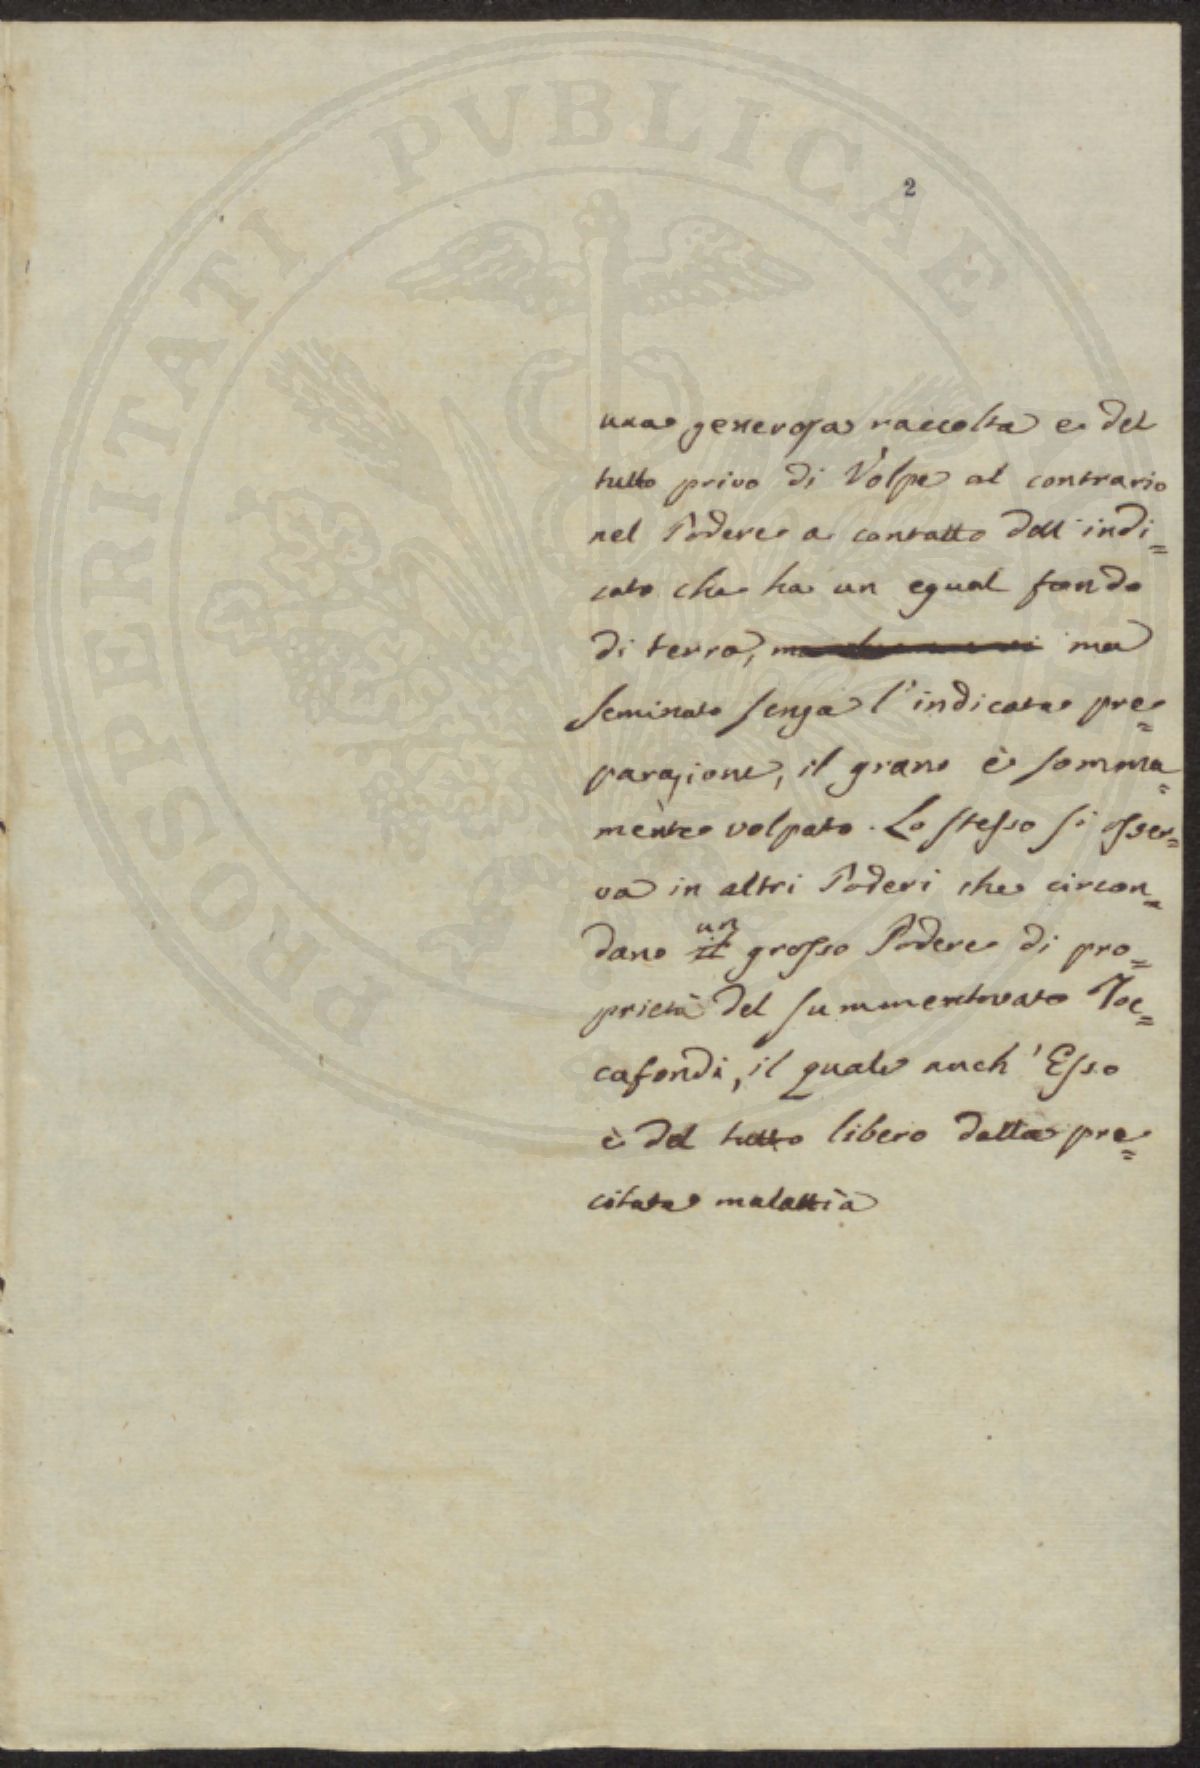 PROSPERITATI PVBLICAE
2
una generosa raccolta e del
tutto privo di Volpe al contrario
nel Podere a contatto dell'indi=
cato che ha un egual fondo
di terra, ma
seminato senza l'indicata pre=
parazione, il grano è somma=
mente volpato. Lo stesso si osser=
va in altri Poderi che circon=
dano il un grosso Podere di pro=
prietà del summentovato Toc=
cafondi, il quale anch'Esso
è del tutto libero dalla pre=
citata malattia